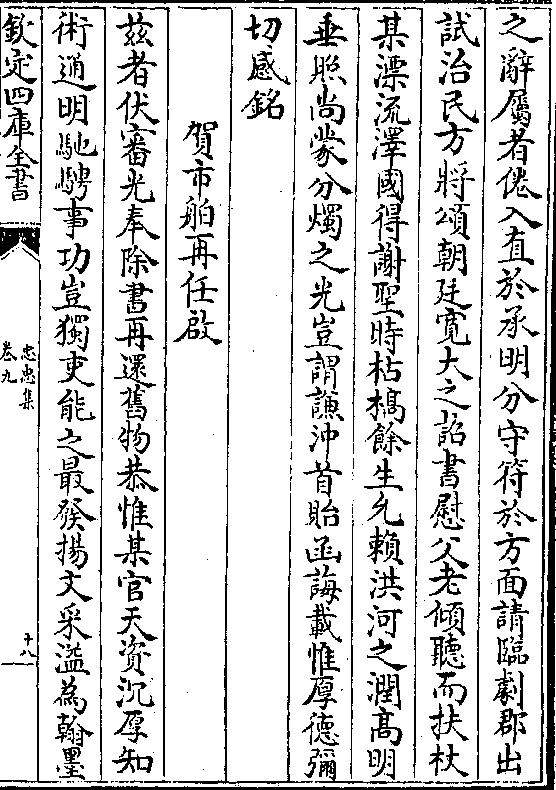 之辭屬者倦入直於承明分守符於方面請臨劇郡出
試治民方將頌朝廷寛大之詔書慰父老傾聽而扶杖
某漂流澤國得謝聖時枯槁餘生允賴洪河之潤高明
垂照尚蒙分燭之光豈謂謙沖首貽函誨載惟厚德彌
切感銘
賀市舶再任啟
兹者伏審光奉除書再還舊物恭惟某官天資沉厚知
術通明馳騁事功豈獨吏能之最發揚文采溢為翰墨
欽定四庫全書
忠惠集
卷九
十八